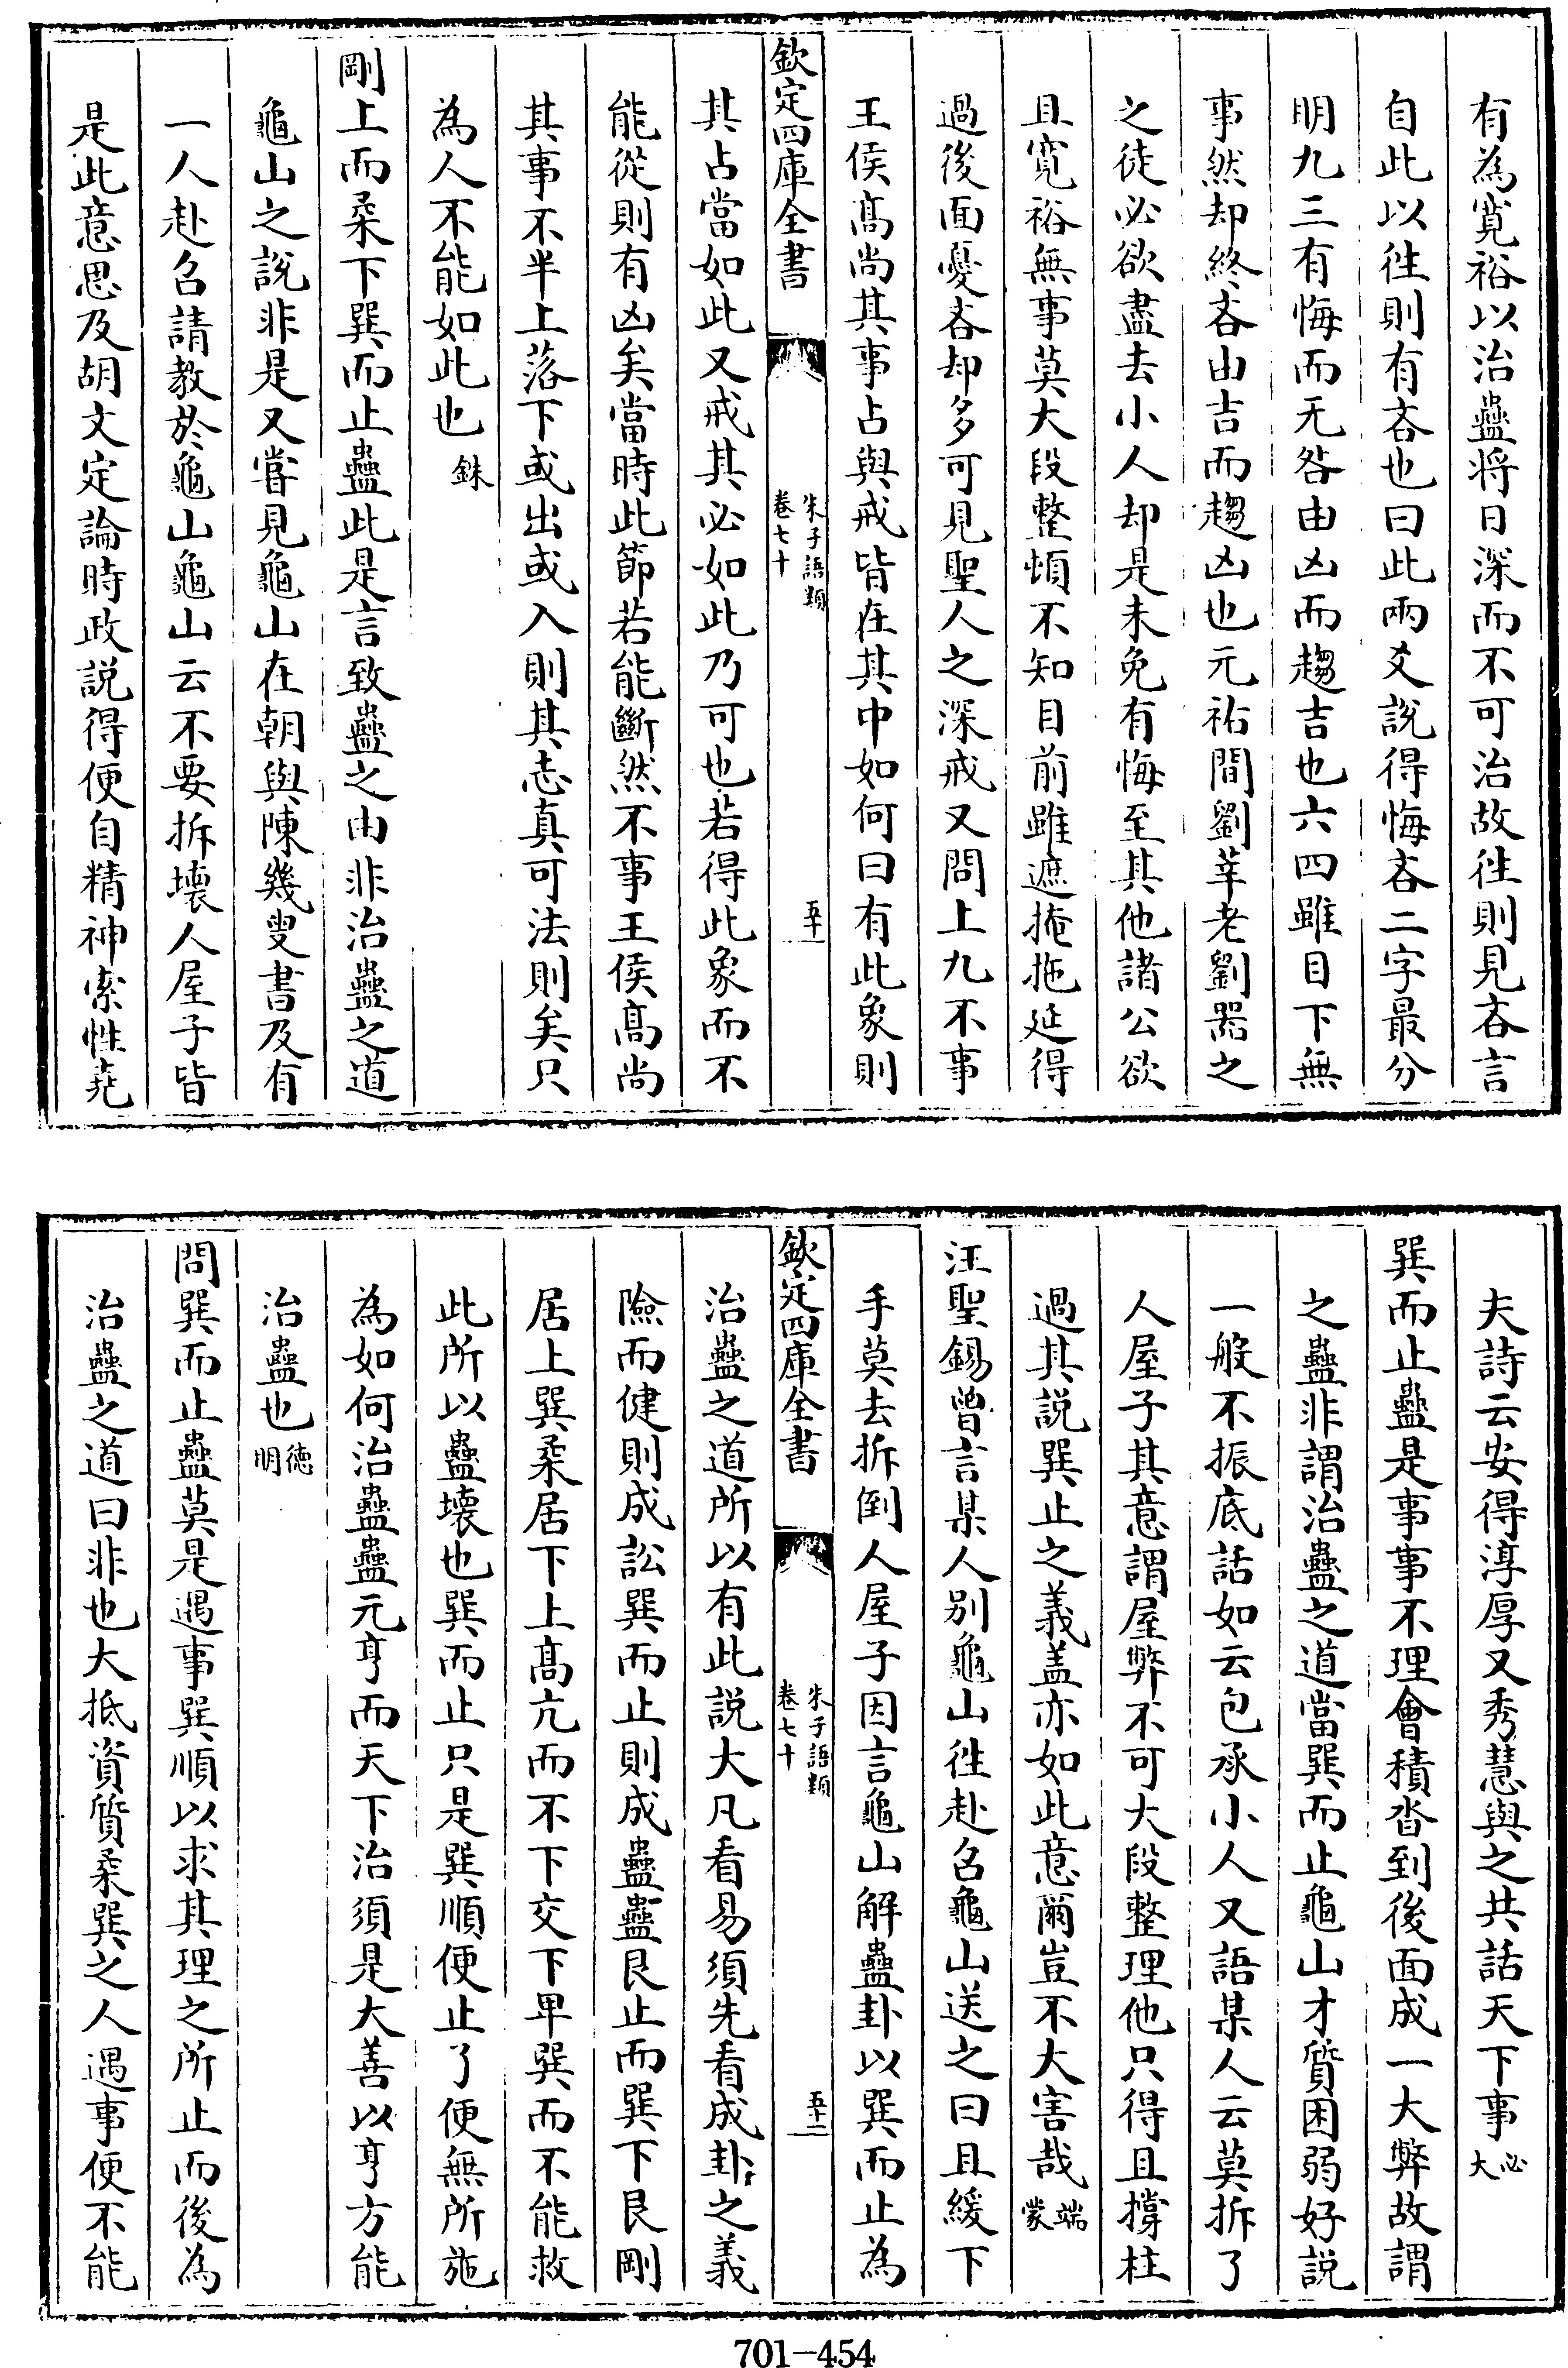 有為寛裕以治蠱将日深而不可治故徃則見吝言
自此以徃則有吝也曰此兩爻說得悔吝二字最分
明九三有悔而无咎由凶而趨吉也六四雖目下無
事然却終吝由吉而趨凶也元祐間劉莘老劉器之
之徒必欲盡去小人却是未免有悔至其他諸公欲
且寛裕無事莫大段整頓不知目前雖遮掩拖延得
過後面憂吝却多可見聖人之深戒又問上九不事
王侯髙尚其事占與戒皆在其中如何曰有此象則
欽定四庫全書
朱子語類
卷七十
五十一
其占當如此又戒其必如此乃可也若得此象而不
能從則有凶矣當時此節若能斷然不事王侯髙尚
其事不半上落下或出或入則其志真可法則矣只
為人不能如此也 銖
剛上而柔下巽而止蠱此是言致蠱之由非治蠱之道
龜山之說非是又嘗見龜山在朝與陳幾叟書及有
一人赴召請教於龜山龜山云不要拆壊人屋子皆
是此意思及胡文定論時政説得便自精神索性堯
夫詩云安得淳厚又秀慧與之共話天下事 必大
巽而止蠱是事事不理會積沓到後面成一大弊故謂
之蠱非謂治蠱之道當巽而止龜山才質困弱好説
一般不振底話如云包承小人又語某人云莫拆了
人屋子其意謂屋弊不可大段整理他只得且撐柱
過其説巽止之義盖亦如此意爾豈不大害哉 端蒙
汪聖錫曾言某人別龜山徃赴召龜山送之曰且緩下
手莫去拆倒人屋子因言龜山解蠱卦以巽而止為
欽定四庫全書
朱子語類
卷七十
五十二
治蠱之道所以有此説大凡看易須先看成卦之義
險而健則成訟巽而止則成蠱蠱艮止而巽下艮剛
居上巽柔居下上髙亢而不下交下卑巽而不能救
此所以蠱壊也巽而止只是巽順便止了便無所施
為如何治蠱蠱元亨而天下治須是大善以亨方能
治蠱也 德明
問巽而止蠱莫是遇事巽順以求其理之所止而後為
治蠱之道曰非也大抵資質柔巽之人遇事便不能
701-454